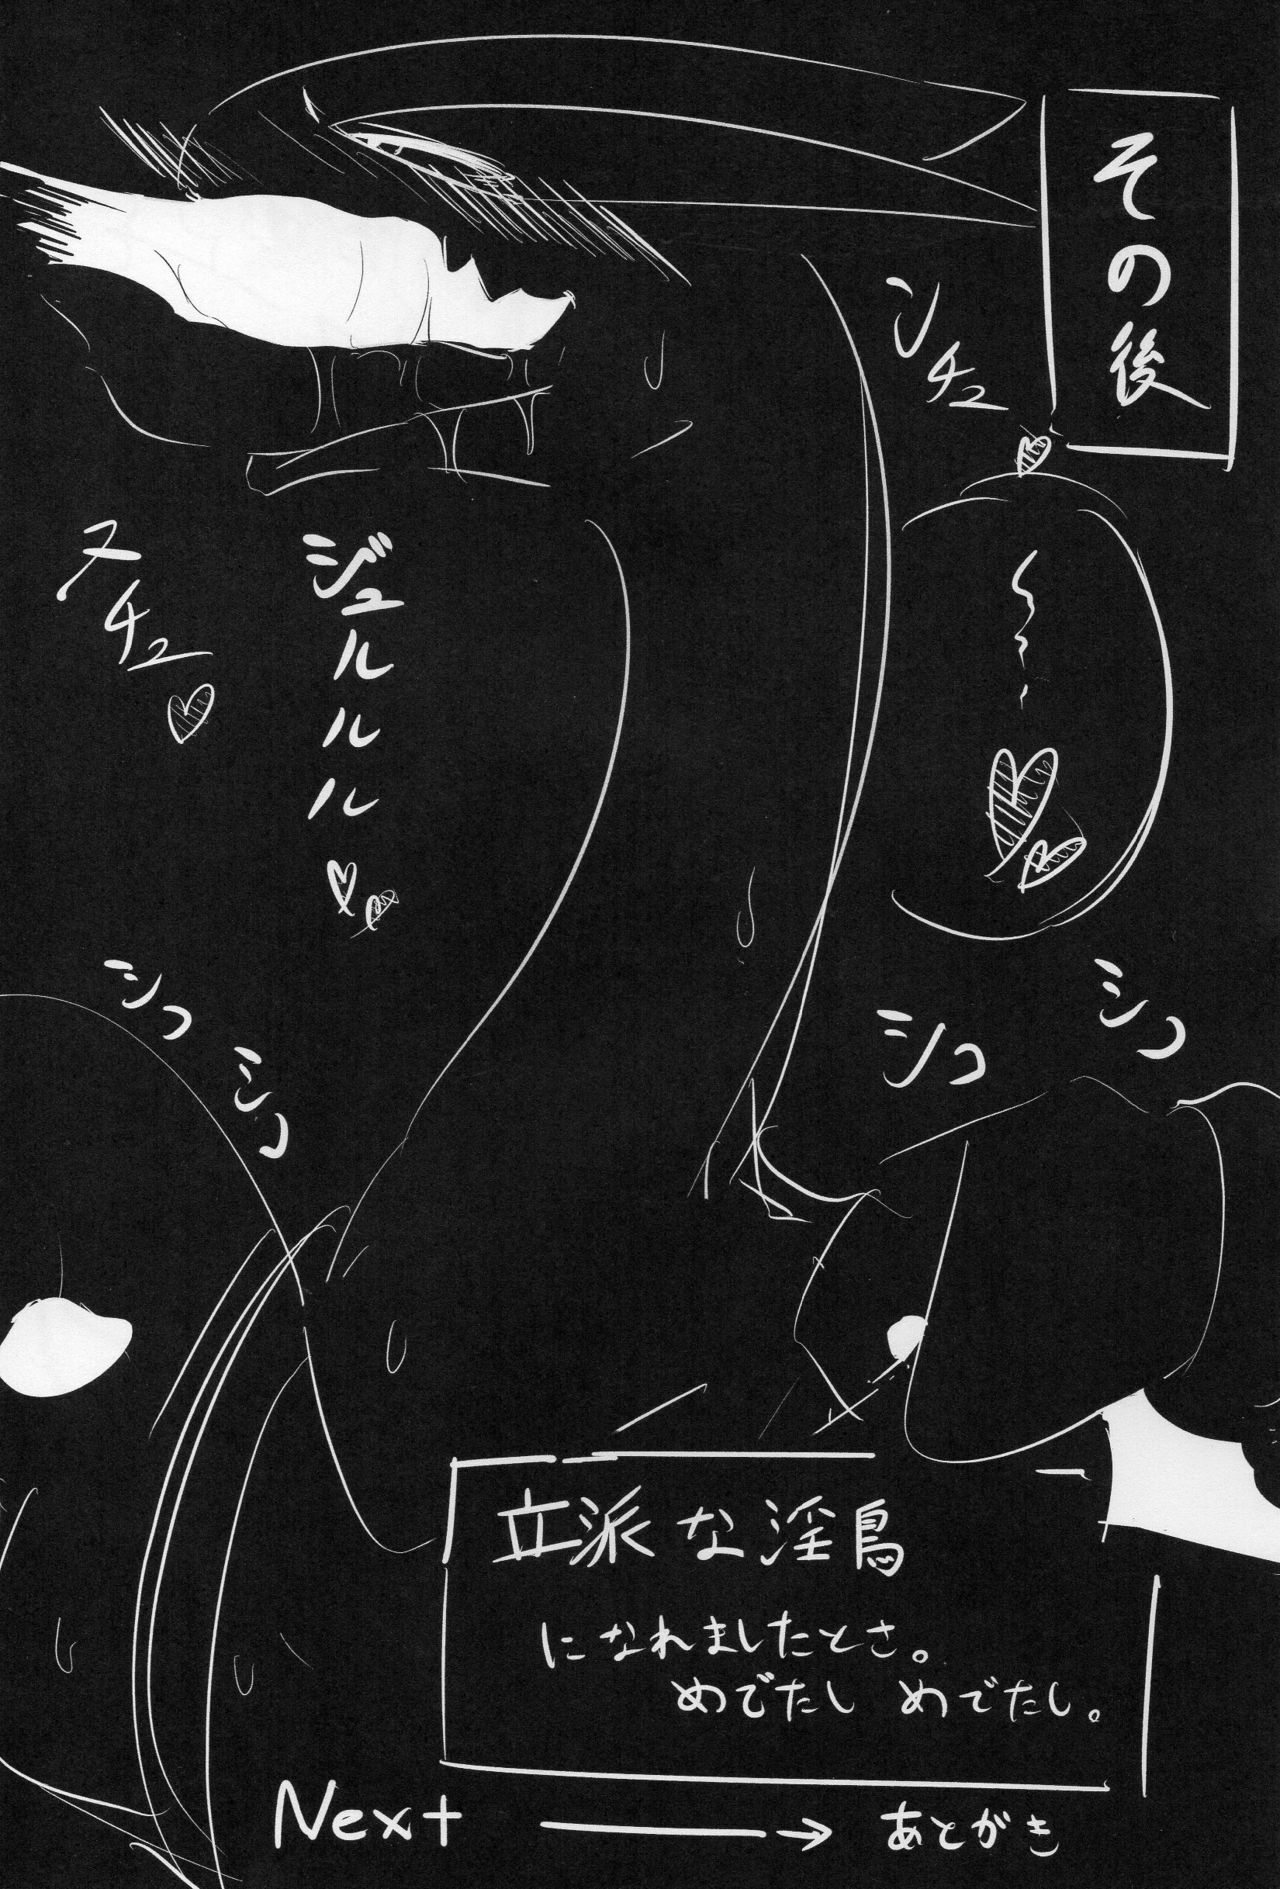 その後
ンチュ
ジュルルル
ヌチュ
シコ
シコ
シコ
シコ
立派な淫鳥
になれましたとさ。
めでたし めでたし。
Next → あとがき